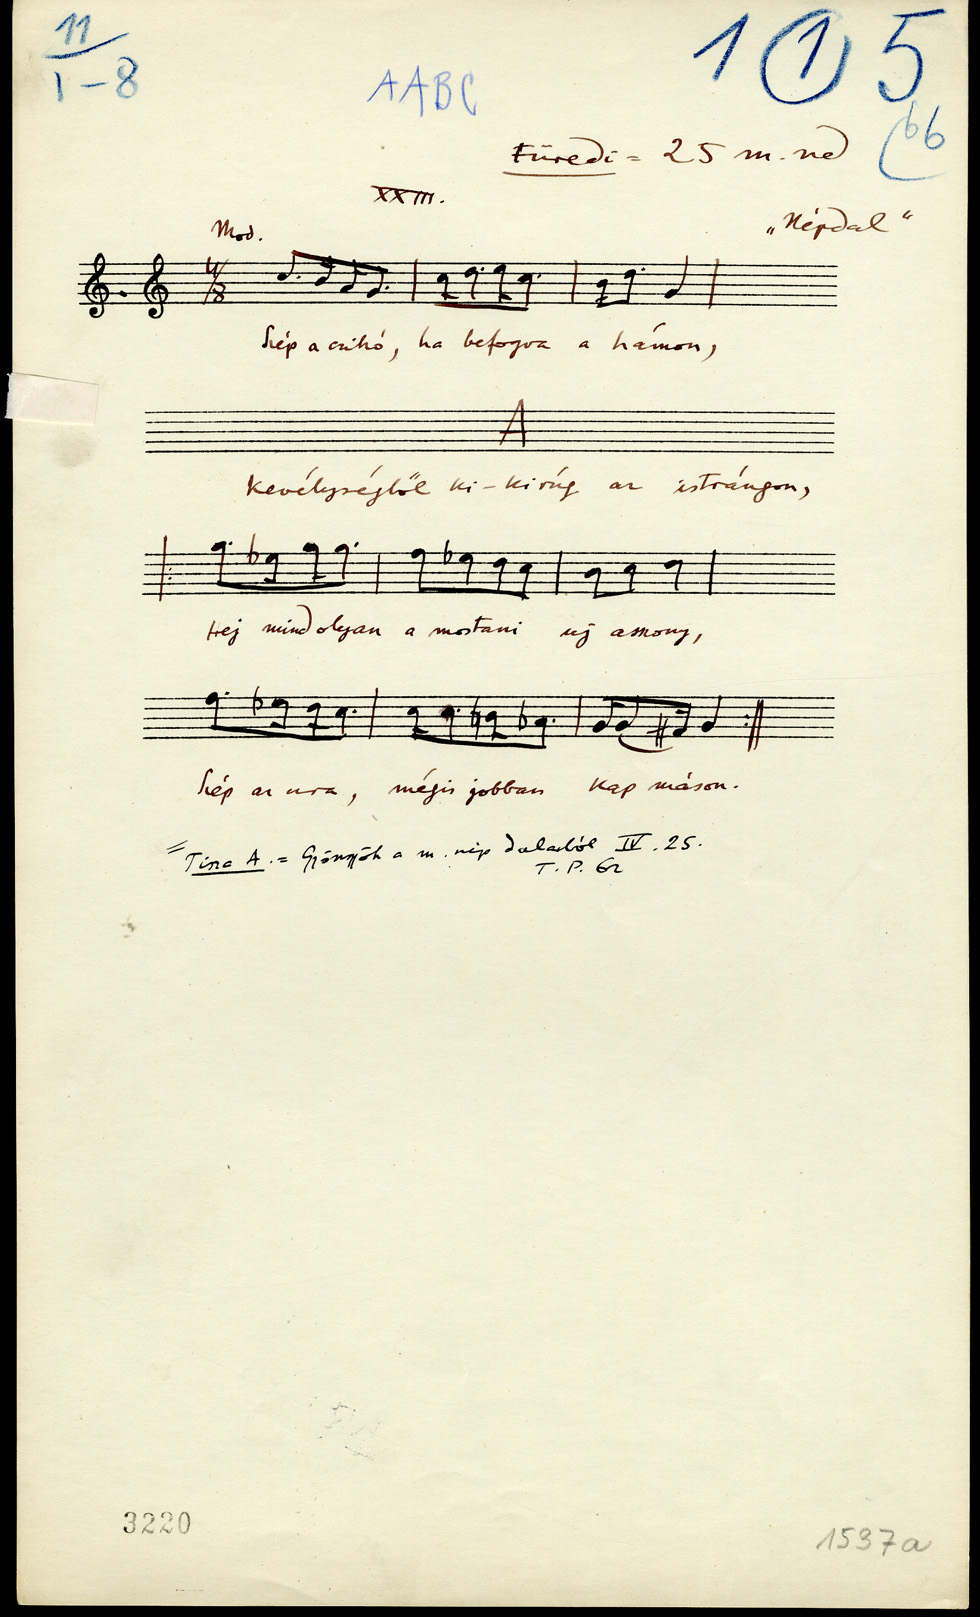 11
1-8
AABC
1 1 5
66
Füredi = 25 m. né
XXIII.
Mod.
„Népdal“
4/8
Szép a csikó, ha befogva a hámon,
A
Kevélységből ki-kirúg az istrángon,
Hej mind olyan a mostani új asszony,
Szép az ura, mégis jobban kap máson.
= Tisza A. = Gyöngyök a m. nép dalaiból IV. 25.
T. P. 62
3220
1537a